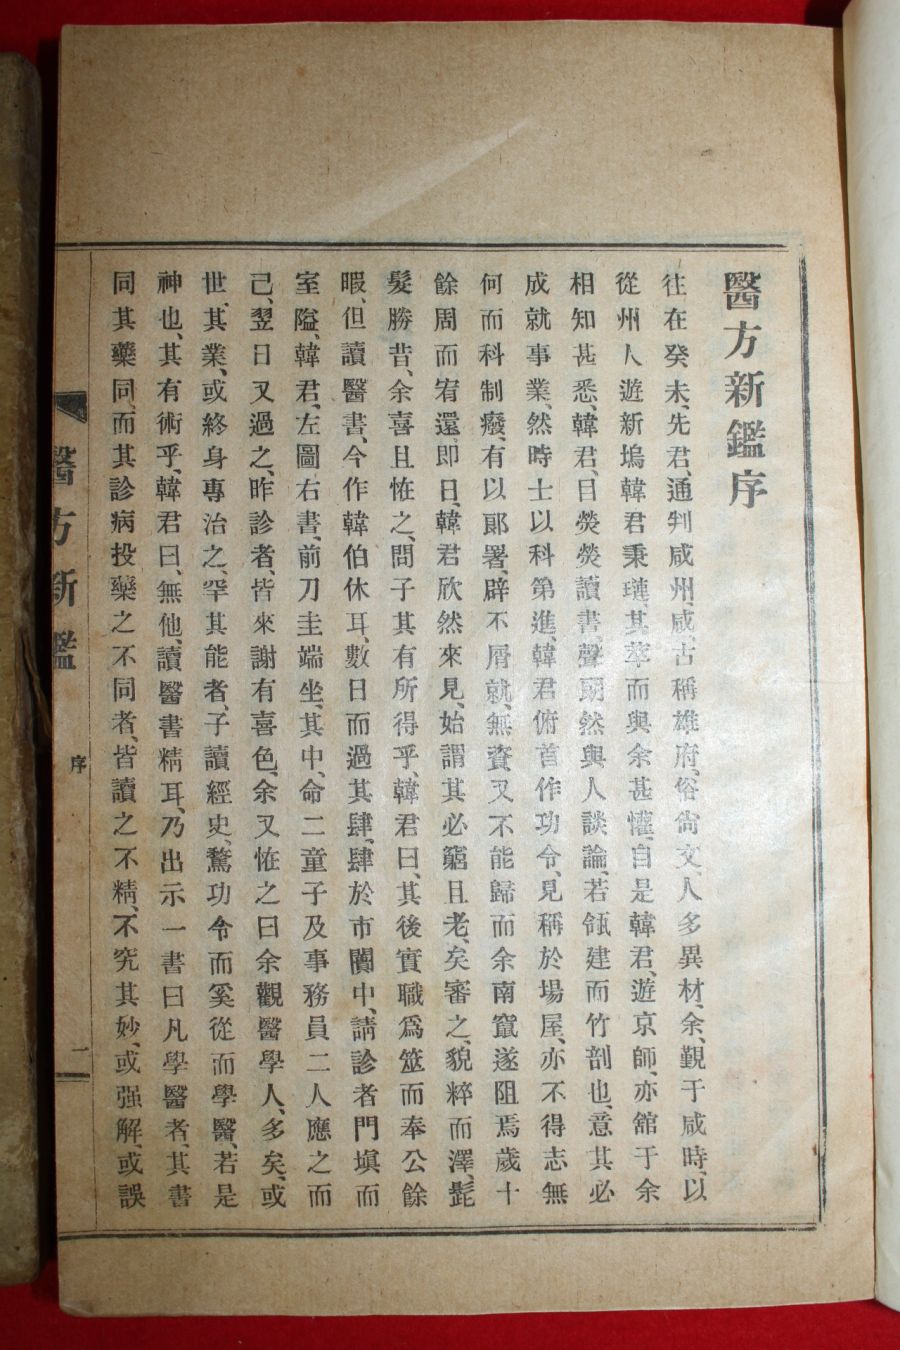 醫方新鑑序
往在癸未、先君、通判咸州、咸、古稱雄府、俗尙文、人多異材、余、覲于咸時、以
從州人遊新塢韓君秉璉、其萃而與余甚懽、自是韓君、遊京師、亦舘于余
相知甚悉、韓君、目熒熒讀書、聲朗然與人談論、若瓴建而竹剖也、意其必
成就事業、然時士以科第進、韓君俯首作功令、見稱於場屋、亦不得志無
何而科制癈、有以郞署、辟不屑就、無資又不能歸而余南竄遂阻焉歲十
餘周而宥還、即日、韓君欣然來見、始謂其必窮且老、矣審之、貌粹而澤、髭
髮勝昔、余喜且恠之、問子其有所得乎、韓君曰、其後實職爲筮而奉公餘
暇、但讀醫書、今作韓伯休耳、數日而過其肆、肆於市闠中、請診者門塡而
室隘、韓君、左圖右書、前刀圭端坐、其中、命二童子及事務員二人應之而
己、翌日又過之、昨診者、皆來謝有喜色、余又恠之曰余觀醫學人、多矣、或
世、其業、或終身專治之、罕其能者、子讀經史、騖功令而奚從而學醫、若是
神也、其有術乎、韓君曰、無他、讀醫書精耳、乃出示一書曰凡學醫者、其書
同其藥同、而其診病投藥之不同者、皆讀之不精、不究其妙、或强解、或誤
醫方新鑑
序
一